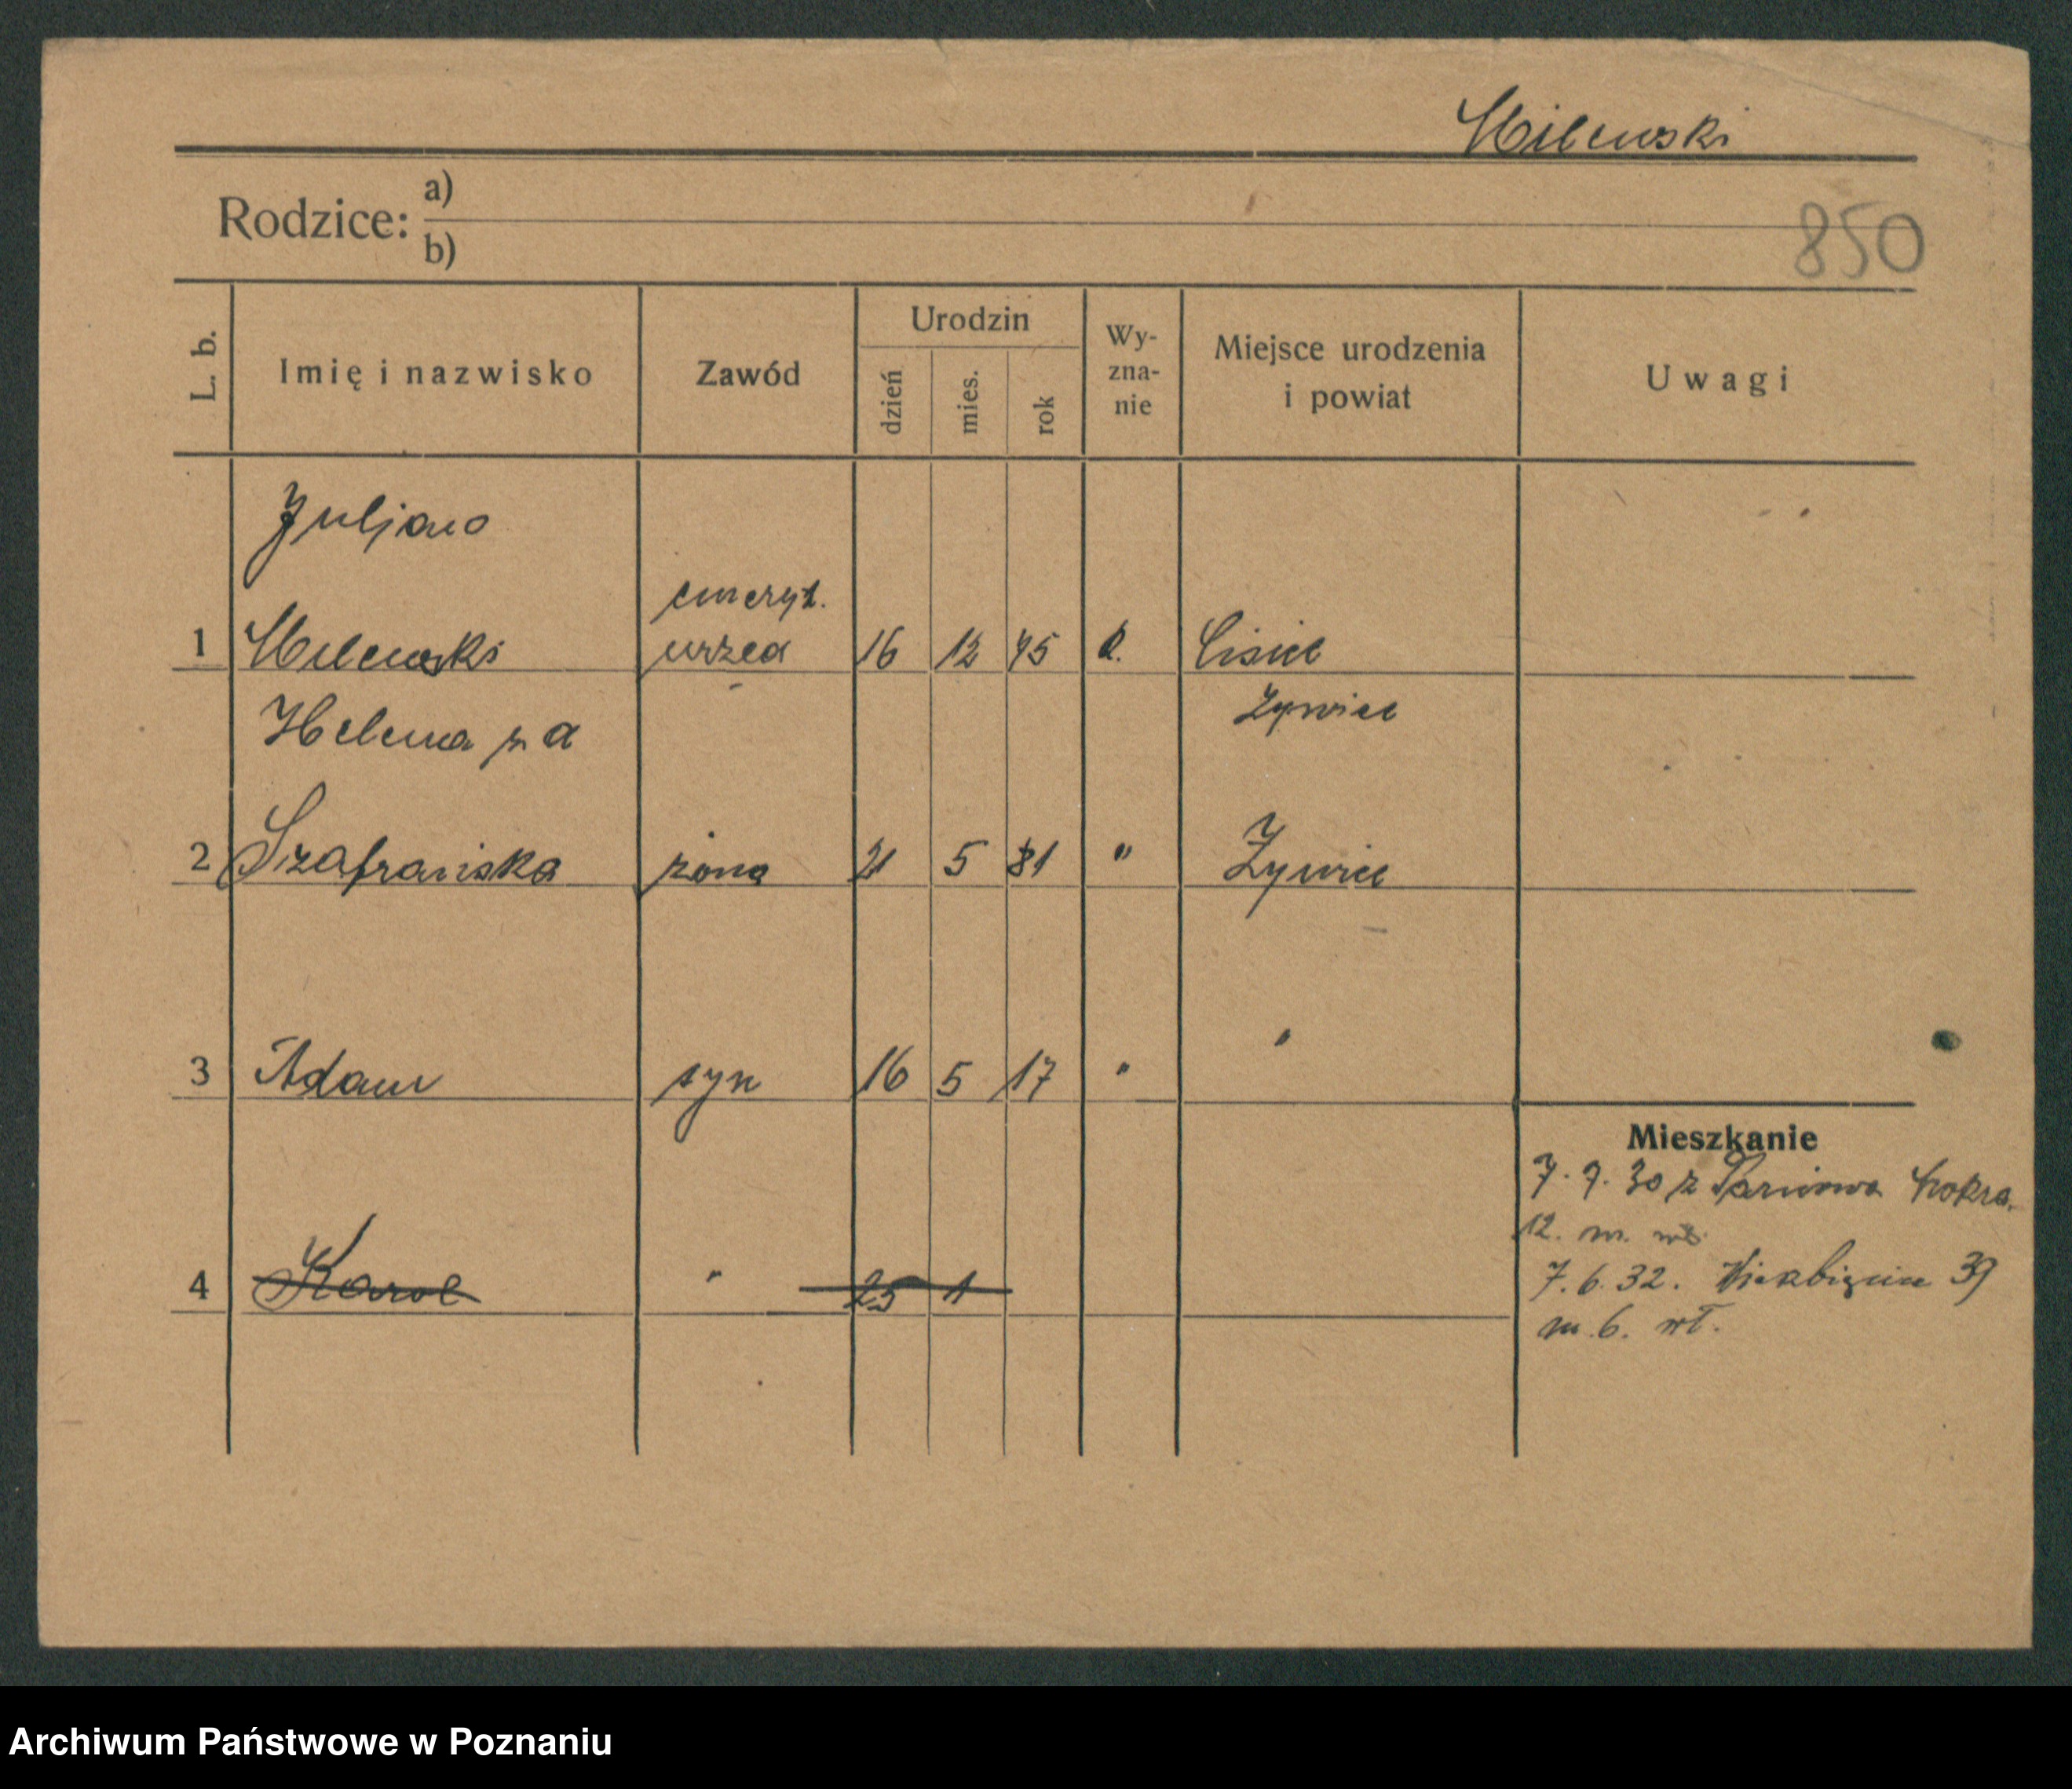 Milewski
Rodzice: a)
b)
850
L. b.
Imię i nazwisko
Zawód
Urodzin
dzień
mies.
rok
Wy-
zna-
nie
Miejsce urodzenia
i powiat
Uwagi
Juljan
emeryt.
1 Milewski urzed 16 12 75 k. Cisiec
Helena z d Żywiec
2 Szafrańska żona 21 5 81 " Żywiec
3 Adam syn 16 5 17 " "
Mieszkanie
7. 7. 30 z
12. m. wł.
4 Karol " 25 1
7. 6. 32. 39
m. 6. wł.
Archiwum Państwowe w Poznaniu